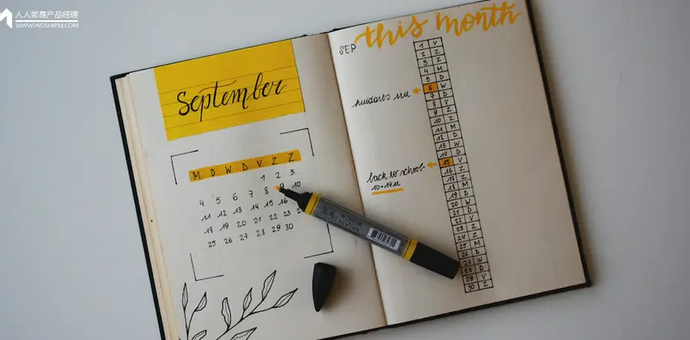 人人都是产品经理
WWW.WOSHIPM.COM
September
M D W D V Z Z
1 2 3
4 5 6 7 8 9 10
11 12 13 14 15 16
18 19 20 21 22 23
25 26 27 28 29 30
SEP this month
1 V
2 Z
3 Z
4 M
5 D
6 W
7 D
8 V
9 Z
10 Z
11 M
12 D
13 W
14 D
15 V
16 Z
17 Z
18 M
19 D
20 W
21 D
22 V
23 Z
24 Z
25 M
26 D
27 W
28 D
29 V
30 Z
back to school
10-14u